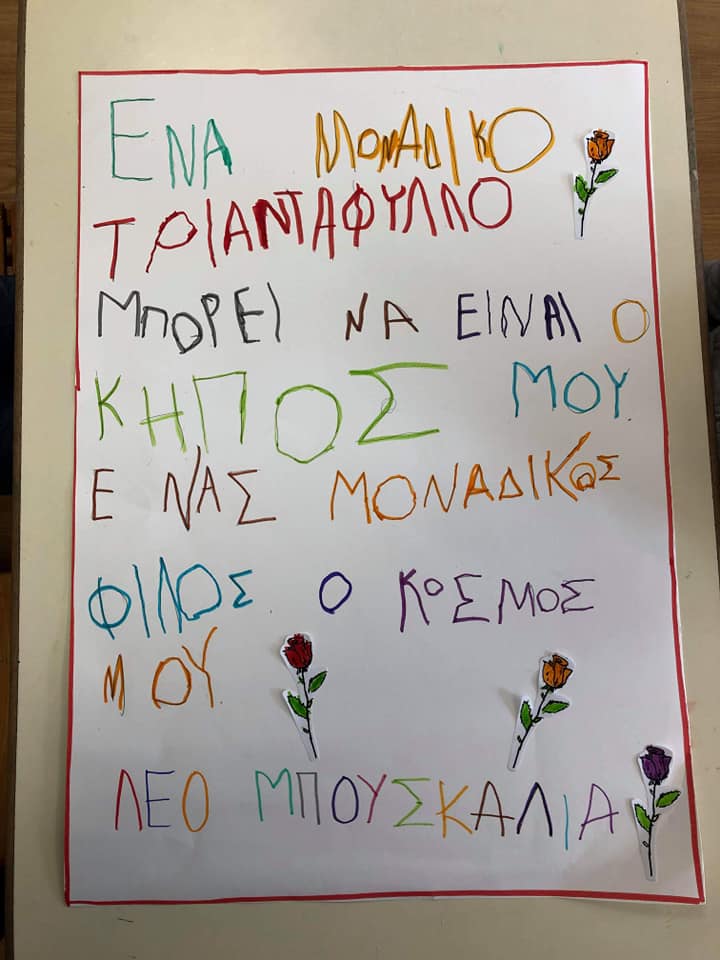 ΕΝΑ ΜΟΝΑΔΙΚΟ
ΤΡΙΑΝΤΑΦΥΛΛΟ
ΜΠΟΡΕΙ ΝΑ ΕΙΝΑΙ Ο
ΚΗΠΟΣ ΜΟΥ
Ε ΝΑΣ ΜΟΝΑΔΙΚΟΣ
ΦΙΛΟΣ Ο ΚΟΣΜΟΣ
ΜΟΥ
ΛΕΟ ΜΠΟΥΣΚΑΛΙΑ